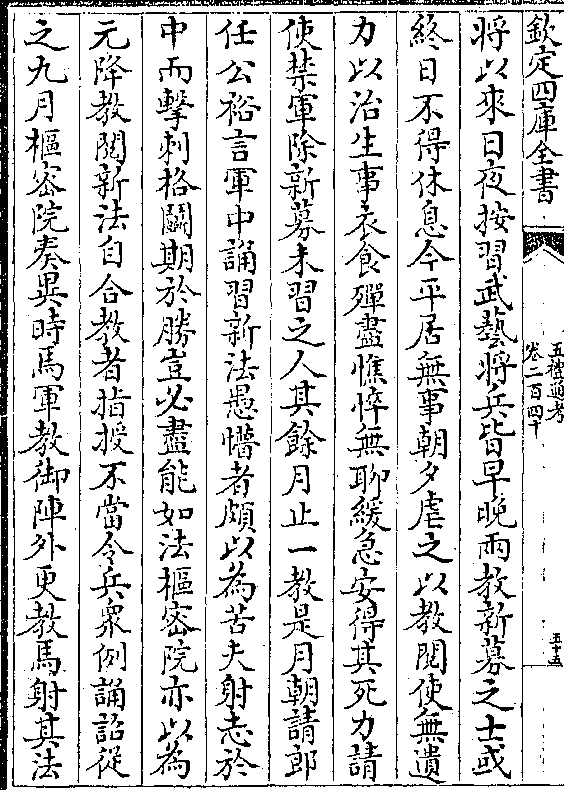 欽定四庫全書
五禮通考
卷二百四十
五十五
將以來日夜按習武藝將兵皆早晚兩教新募之士或
終日不得休息今平居無事朝夕虐之以教閱使無遺
力以治生事衣食殫盡憔悴無聊緩急安得其死力請
使禁軍除新募未習之人其餘月止一教是月朝請郎
任公裕言軍中誦習新法愚懵者頗以為苦夫射志於
中而擊刺格鬭期於勝豈必盡能如法樞密院亦以為
元降教閱新法自合教者指授不當令兵衆例誦詔從
之九月樞密院奏異時馬軍教御陣外更教馬射其法